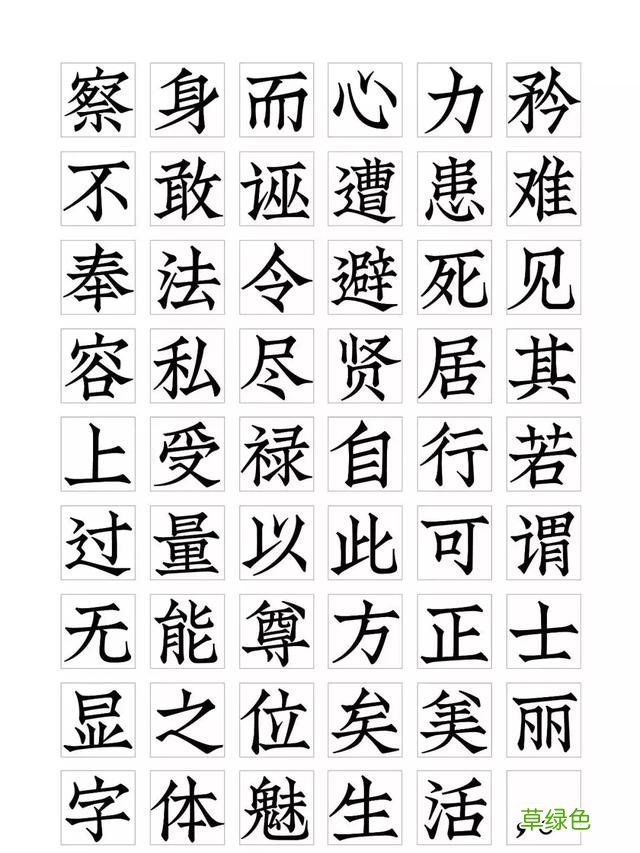 察身而心力矜
不敢诬遭患难
奉法令避死见
容私尽贤居其
上受禄自行若
过量以此可谓
无能尊方正士
显之位矣美丽
字体魅生活
草绿色